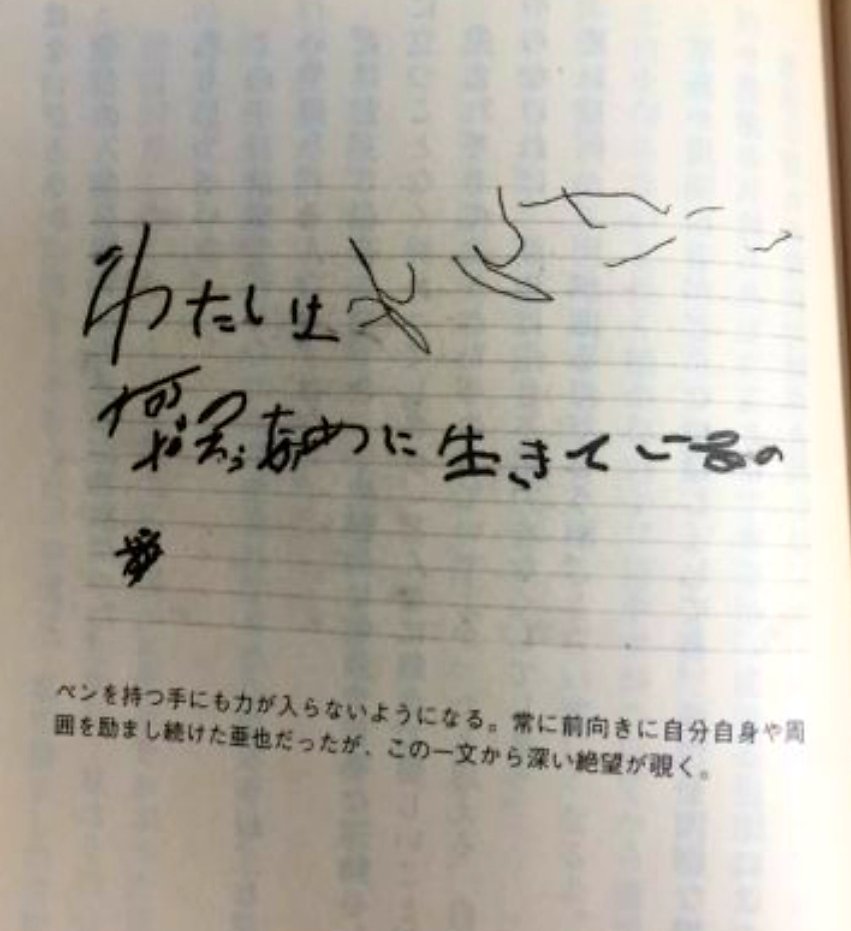 わたしは
何の為に生きているの
ペンを持つ手にも力が入らないようになる。常に前向きに自分自身や周
囲を励まし続けた亜也だったが、この一文から深い絶望が覗く。